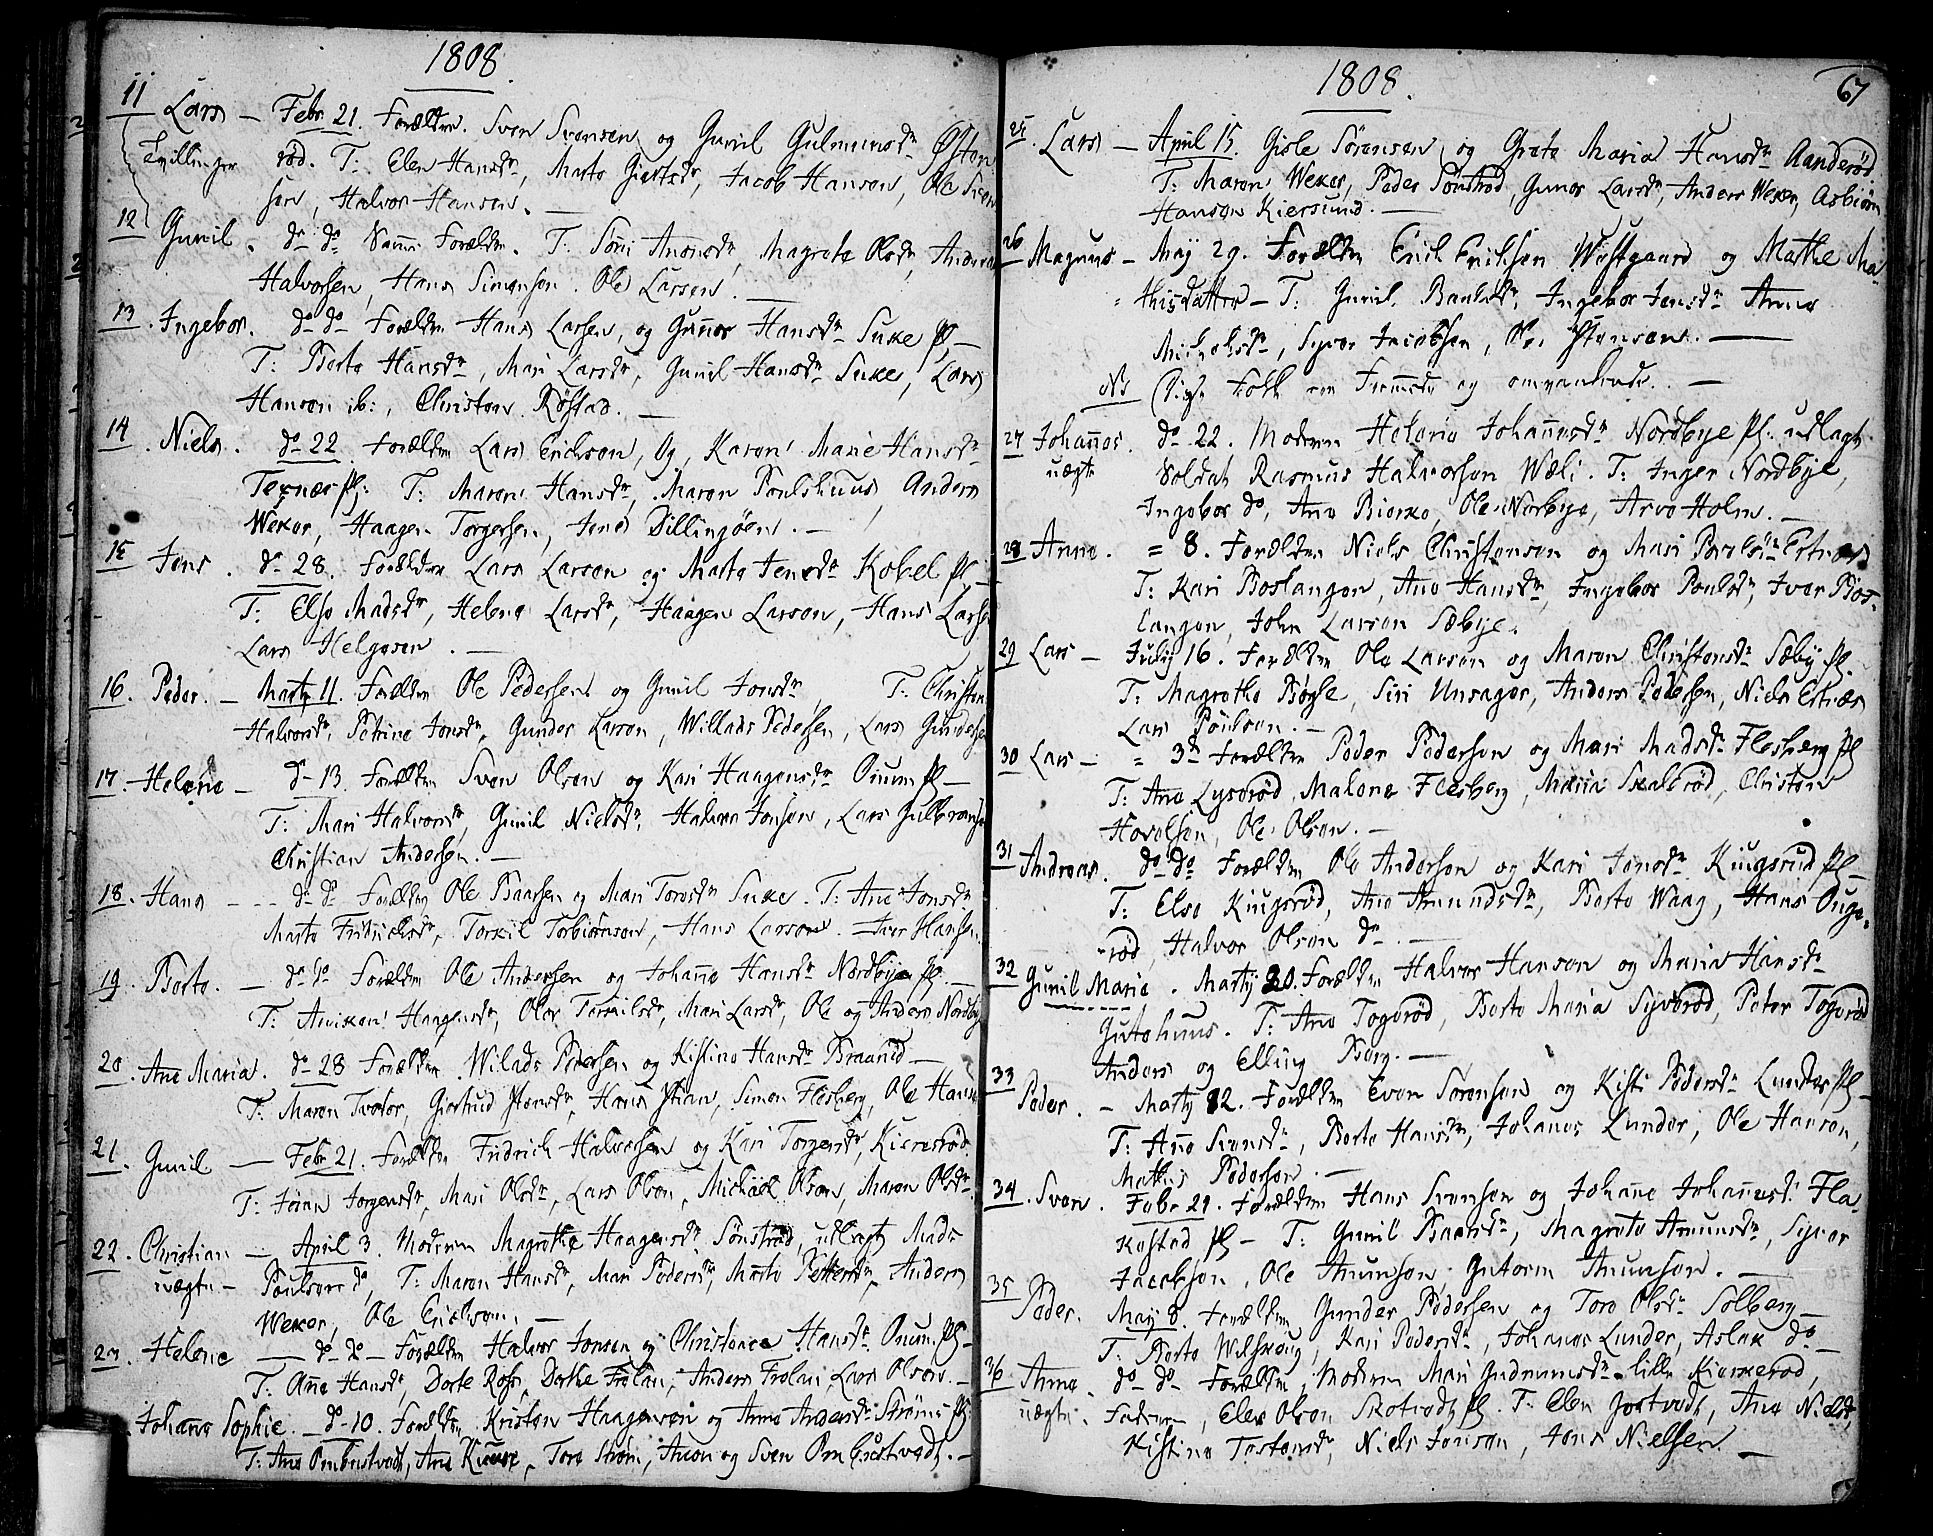 1808.
11 Lars — Febr 21. Forældre. Sven Svensen og Gunil Gulmundsdr Østen
Tvillinger rød. T: Elen Hansdr, Marte Giertsdr, Jacob Hansen, Ole Sven
sen, Halvor Hansen. —
12 Gunil. do do Samme Forældre. T: Anonsdr, Magrete Olsdr, Anders
Halvorsen, Hans Simonsen. Ole Larsen. —
13. Ingebor. do do Forældre Hans Larsen, og Gunnor Hansdr Suke pl —
T: Berte Hansdr, Mari Larsdr, Gunil Hansdr Suke, Lars
Hansen ib:, Christen Røstad. —
14. Niels. do 22 Forældre Lars Erichsen, Og, Karen Marie Hansdr
Texnæs pl: T: Maren Hansdr, Maren Poulshuus, Anders
Weker, Haagen Torgersen, Jens Dillingøen. —
15 Jens. do 28. Forældre Lars Larsen og Marte Jensdr Kobel pl —
T: Else Madsdr, Helene Larsdr, Haagen Larsen, Hans Larse
Lars Helgesen. —
16. Peder. — Martj 11. Forældre Ole Pedersen og Gunil Jonsdr T: Christen
Halvorsdr, Petrine Jonsdr, Gunder Larsen, Willads Pedersen, Lars Gundersen
17. Helene — do 13. Forældre Sven Olsen og Kari Haagensdr Ouum pl —
T: Mari Halvorsdr, Gunil Nielsdr, Halvor Jonsen, Lars Gulbransen
Christian Andersen. —
18. Hans — do do Forældre Ole Baarsen og Mari Toresdr Suke. T: Ane Jonsdr
Marte Fridrichsdr, Torkil Torbiørnsen, Hans Larsen. Iver Hansen
19. Berte. — do do Forældre Ole Andersen og Johanne Hansdr Nordbye pl. —
T: Aniken Haagensdr, Olor Torkilsdr, Mari Larsdr, Ole og Anders Nordby
20. Ane Maria. do 28 Forældre. Wilads Pedersen og Kistine Hansdr Braarud —
T: Maren Tveter, Giertrud Stensdr, Hans Stian, Simen Flesberg, Ole Hansen
21. Gunil — Febr 21. Forældre Fridrich Halvorsen og Kari Torgersdr, Kierresrød
T: Jøran Jorgensdr, Mari Olsdr, Lars Olsen, Michael Olsen, Maren Olsdr
22. Christian — April 3. Moderen Magrethe Haagensdr Sønstrød, udlagt Mads
uægte — Poulsen do, T: Maren Hansdr, Mari Pedersdr, Marte Pettersdr, Anders
Weker, Ole Erichsen. —
23. Helene — do do — Forældre Halvor Jonsen og Christence Hansdr. Ouum. pl —
T: Ane Hansdr, Dorte Ross, Dorthe Frølan, Anders Frølan, Lars Olsen. —
Johane Sophie. — do 10. Forældre, Kristen Haagensen og Anne Andersdr Strøms pl
T: Ane Ombustvedt, Ane Kure, Tore Strøm, Anon og Sven Ombustvedt. —
1808.
67
25. Lars — April 15. Gisle Sørensen og Grete Maria Hansdr Aanderød
T: Maren Weker, Peder Sønstrød, Gunor Larsdr, Anders Weker, Asbiørn
Hansen Kiersund. —
26 Magnus — May 29. Forældre Erich Erichsen Westgaard og Mathe Ma-
thisdatter — T: Gunil Baardsdr, Ingebor Jensdr Anne
Michelsdr, Syver Jacobsen, Ole Stensen. —
NB Disse Folk ere Fremmede og omvankende. —
27 Johannes. do 22. Moderen Helene Johannesdr Nordbye pl. udlagt
uægte Soldat Rasmus Halvorsen Wæli. T: Inger Nordbye,
Ingebor do, Ane Bierke, Ole Norbye, Arve Holm. —
28 Anne. = 8. Forældre Niels Christensen og Mari Povelsdr Estnes
T: Kari Boslangen, Ane Hansdr, Ingebor Poulsdr, Iver Bos-
langen, John Larsen Sæbye.
29 Lars — July 16. Forældre Ole Larsen og Maren Christensdr Sæby pl.
T: Magrethe Bøgle, Siri Unsager, Anders Pedersen, Niels Estnæs
Lars Poulsen. —
30 Lars — = 3d Forældre Peder Pedersen og Mari Madsdr Flesberg pl
T: Ane Lyserød, Malene Flesberg, Maria Skalerød, Christen
Hovelsen, Ole Olsen. —
31 Andreas. do do Forældre Ole Andersen og Kari Jensdr Kiugsrud pl —
T: Else Kiugsrød, Ane Amundsdr, Berte Waag, Hans Ouge-
rød, Halvor Olsen do —
32 Gunil Marie. Martj 20. Forældre Halvor Hansen og Maria Hansdr
Gutehuus. T: Ane Togerød, Berte Maria Syverød, Peter Togerød
Anders og Elling Berg. —
33 Peder. — Martj 12. Forældre Even Sørensen og Kisti Pedersdr Lunder pl —
T: Ane Svensdr, Berte Hansdr, Johanes Lunder, Ole Hansen,
Mathis Pedersen. —
34. Sven. Febr 21. Forældre Hans Svensen og Johane Johannesdr Fla-
kestad pl — T: Gunil Baarsdr, Magrete Amunsdr, Syver
Jacobsen, Ole Amunsen, Gutorm Amunsen. —
35 Peder. May 8. Forældre Gunder Pedersen og Tore Olsdr Solberg —
T: Berte Wilskoug, Kari Pedersdr, Johanes Lunder, Aslak do —
36 Anne. do do Forældre, Moderen Mari Gudmunsdr lille Kierkerød,
uægte. Faderen, Elev Olsen Skotvedt pl. T: Elen Jostvedt, Ane Nielsdr,
Kistine Tostensdr, Niels Jensen, Jens Nielsen —